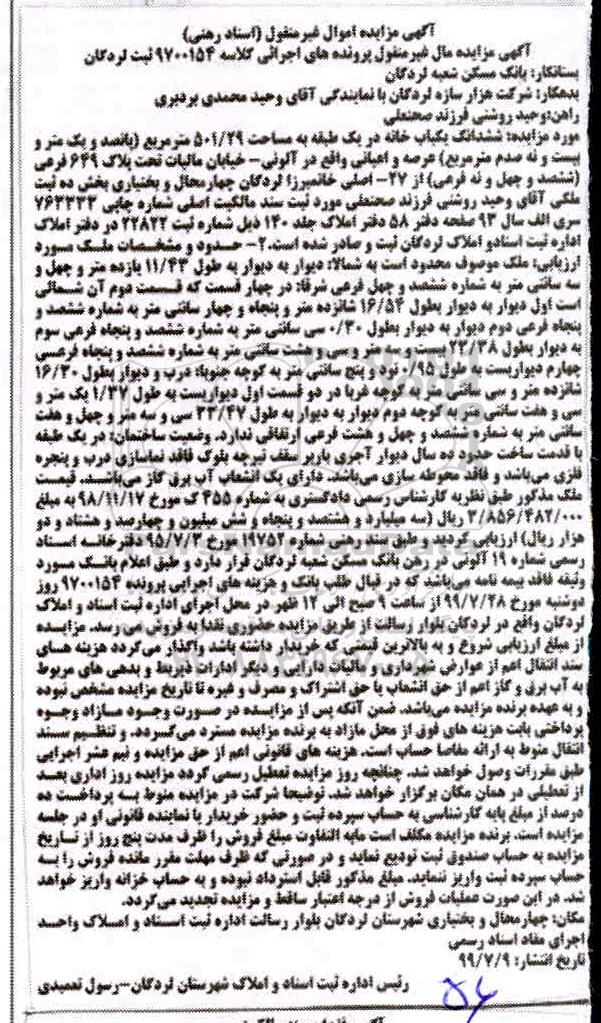 آگهی مزایده اموال غیرمنقول (اسناد رهنی)
آگهی مزایده مال غیرمنقول پرونده های اجرائی کلاسه ۹۷۰۰۱۵۴ ثبت لردگان
بستانکار: بانک مسکن شعبه لردگان
بدهکار: شرکت هزار سازه لردگان با نمایندگی آقای وحید محمدی پردنبری
راهن: وحید روشنی فرزند صحنعلی
مورد مزایده: ششدانگ یکباب خانه در یک طبقه به مساحت ۵۰۱/۲۹ مترمربع (پانصد و یک متر و
بیست و نه صدم مترمربع) عرصه و اعیانی واقع در آلونی- خیابان مالیات تحت پلاک ۶۴۹ فرعی
(ششصد و چهل و نه فرعی) از ۲۷- اصلی خانمیرزا لردگان چهارمحال و بختیاری بخش ده ثبت
ملکی آقای وحید روشنی فرزند صحنعلی مورد ثبت سند مالکیت اصلی شماره چاپی ۷۶۳۳۳۳
سری الف سال ۹۳ صفحه دفتر ۵۸ دفتر املاک جلد ۱۴۰ ذیل شماره ثبت ۲۲۸۲۲ در دفتر املاک
اداره ثبت اسنادو املاک لردگان ثبت و صادر شده است.۲- حدود و مشخصات ملک مورد
ارزیابی: ملک موصوف محدود است به شمالا: دیوار به دیوار به طول ۱۱/۴۳ یازده متر و چهل و
سه سانتی متر به شماره ششصد و چهل فرعی شرقا: در چهار قسمت که قسمت دوم آن شمالی
است اول دیوار به دیوار بطول ۱۶/۵۴ شانزده متر و پنجاه و چهار سانتی متر به شماره ششصد و
پنجاه فرعی دوم دیوار به دیوار بطول ۰/۳۰ سی سانتی متر به شماره ششصد و پنجاه فرعی سوم
به دیوار بطول ۲۳/۳۸ بیست و سه متر و سی و هشت سانتی متر به شماره ششصد و پنجاه فرعسی
چهارم دیواریست به طول ۰/۹۵ نود و پنج سانتی متر به کوچه جنوبا: درب و دیوار بطول ۱۶/۳۰
شانزده متر و سی سانتی متر به کوچه غربا در دو قسمت اول دیواریست به طول ۱/۳۷ یک متر و
سی و هفت سانتی متر به کوچه دوم دیوار به دیوار به طول ۳۳/۴۷ سی و سه متر و چهل و هفت
سانتی متر به شماره ششصد و چهل و هشت فرعی ارتفاقی ندارد. وضعیت ساختمان: در یک طبقه
با قدمت ساخت حدود ده سال دیوار آجری باربر سقف تیرچه بلوک فاقد نماسازی درب و پنجره
فلزی می‌باشد و فاقد محوطه سازی می‌باشد. دارای یک انشعاب آب برق گاز می‌باشد. قیمت
ملک مذکور طبق نظریه کارشناس رسمی دادگستری به شماره ۴۵۵ ک مورخ ۹۸/۱۱/۱۷ به مبلغ
۳/۸۵۶/۴۸۲/۰۰۰ ریال (سه میلیارد و هشتصد و پنجاه و شش میلیون و چهارصد و هشتاد و دو
هزار ریال) ارزیابی گردید و طبق سند رهنی شماره ۱۹۷۵۲ مورخ ۹۵/۷/۳ دفترخانه اسناد
رسمی شماره ۱۹ آلونی در رهن بانک مسکن شعبه لردگان قرار دارد و طبق اعلام بانک مورد
وثیقه فاقد بیمه نامه می‌باشد که در قبال طلب بانک و هزینه های اجرایی پرونده ۹۷۰۰۱۵۴ روز
دوشنبه مورخ ۹۹/۷/۲۸ از ساعت ۹ صبح الی ۱۲ ظهر در محل اجرای اداره ثبت اسناد و املاک
لردگان واقع در لردگان بلوار رسالت از طریق مزایده حضوری نقدا به فروش می رسد. مزایده
از مبلغ ارزیابی شروع و به بالاترین قیمتی که خریدار داشته باشد واگذار می‌گردد هزینه های
سند انتقال اعم از عوارض شهرداری و مالیات دارایی و دیگر ادارات ذیربط و بدهی های مربوط
به آب برق و گاز اعم از حق انشعاب یا حق اشتراک و مصرف و غیره تا تاریخ مزایده مشخص نبوده
و به عهده برنده مزایده می‌باشد. ضمن آنکه پس از مزایده در صورت وجود مازاد وجوه
پرداختی بابت هزینه های فوق از محل مازاد به برنده مزایده مسترد می‌گردد. و تنظیم سند
انتقال منوط به ارائه مفاصا حساب است. هزینه های قانونی اعم از حق مزایده و نیم عشر اجرایی
طبق مقررات وصول خواهد شد. چنانچه روز مزایده تعطیل رسمی گردد مزایده روز اداری بعد
از تعطیلی در همان مکان برگزار خواهد شد. توضیحا شرکت در مزایده منوط به پرداخت ده
درصد از مبلغ پایه کارشناسی به حساب سپرده ثبت و حضور خریدار یا نماینده قانونی او در جلسه
مزایده است. برنده مزایده مکلف است مابه التفاوت مبلغ فروش را ظرف مدت پنج روز از تاریخ
مزایده به حساب صندوق ثبت تودیع نماید و در صورتی که ظرف مهلت مقرر مانده فروش را به
حساب سپرده ثبت واریز ننماید. مبلغ مذکور قابل استرداد نبوده و به حساب خزانه واریز خواهد
شد. در این صورت عملیات فروش از درجه اعتبار ساقط و مزایده تجدید می‌گردد.
مکان: چهارمحال و بختیاری شهرستان لردگان بلوار رسالت اداره ثبت اسناد و املاک واحد
اجرای مفاد اسناد رسمی
تاریخ انتشار: ۹۹/۷/۹
رئیس اداره ثبت اسناد و املاک شهرستان لردگان-رسول تعمیدی